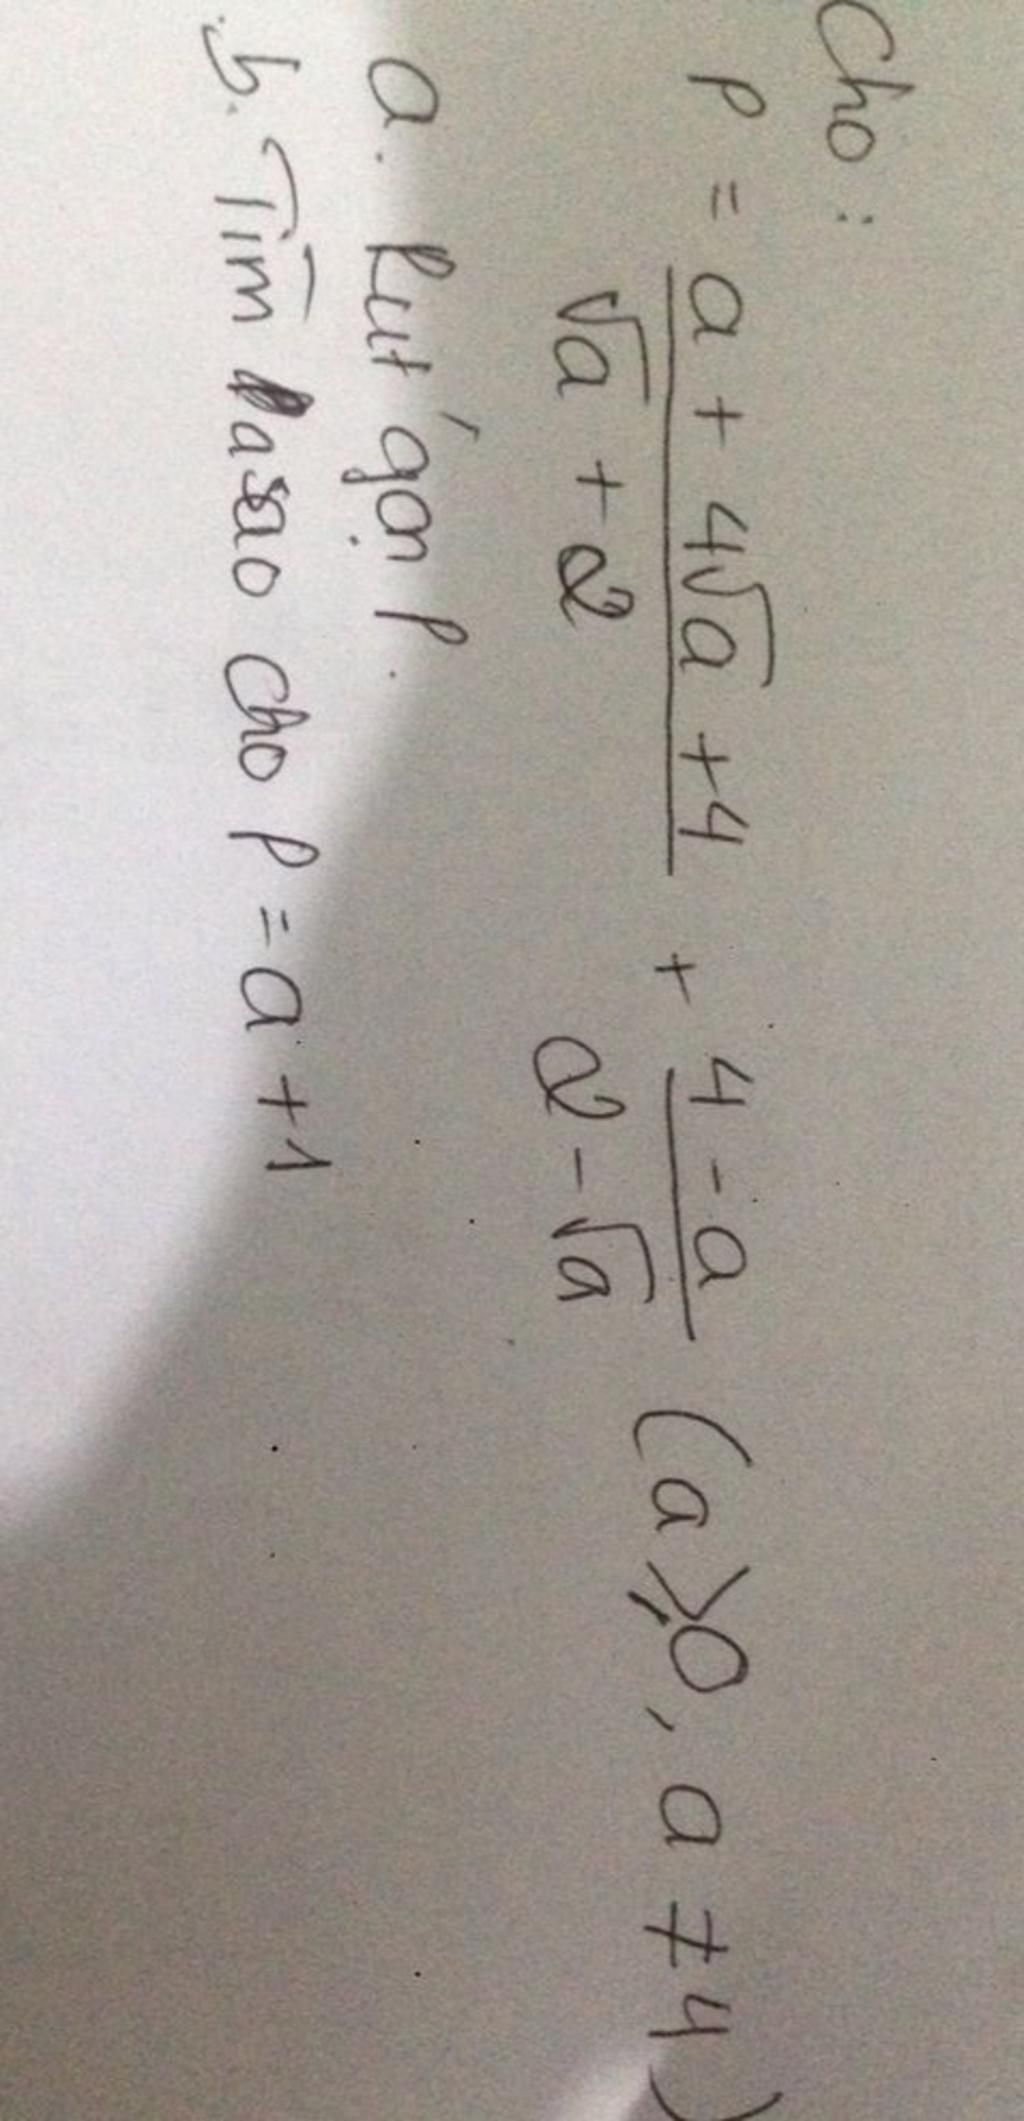 Cho :
P = (a + 4√a + 4)/(√a + 2) + (4 - a)/(2 - √a) (a ⩾ 0, a ≠ 4)
a. Rút gọn P.
b. Tìm a sao cho P = a + 1